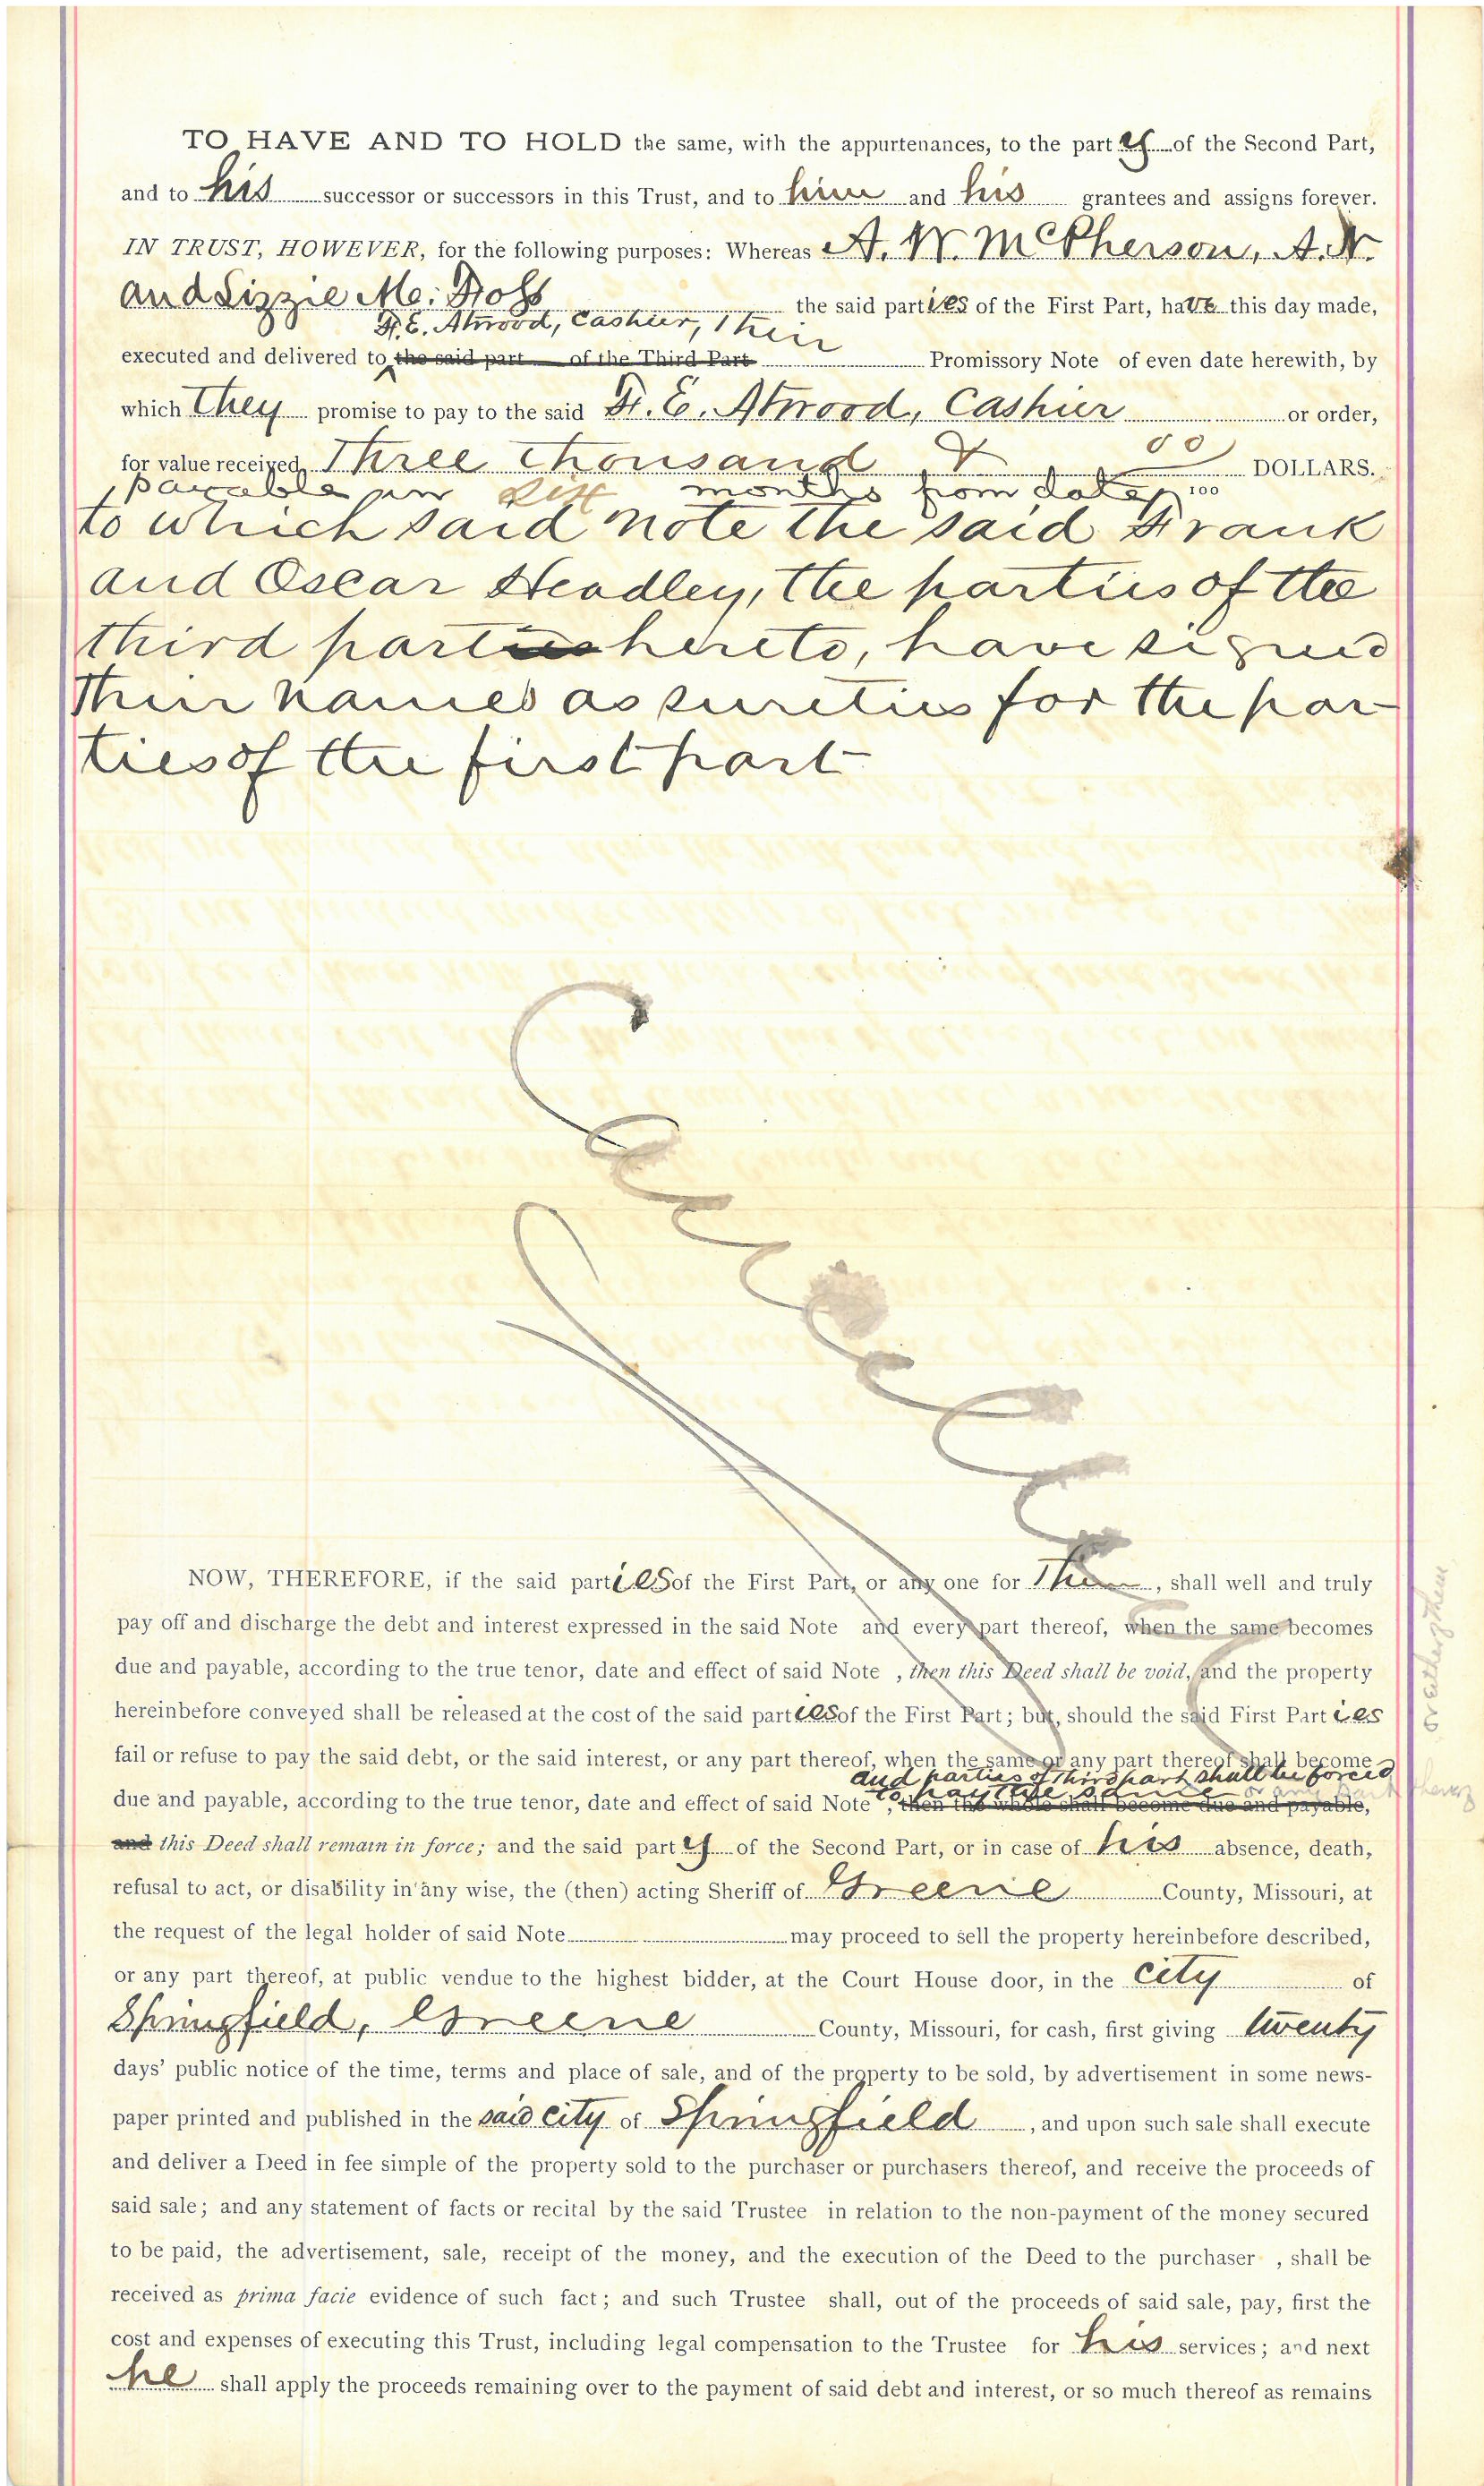 TO HAVE AND TO HOLD the same, with the appurtenances, to the party of the Second Part,
and to his successor or successors in this Trust, and to him and his grantees and assigns forever.
IN TRUST, HOWEVER, for the following purposes: Whereas A. W. McPherson, A. N.
and Lizzie Mc: the said parties of the First Part, have this day made,
F. E. Atwood, Cashier, Their
executed and delivered to the said part of the Third Part Promissory Note of even date herewith, by
which They promise to pay to the said F. E. Atwood, Cashier or order,
for value received, Three Thousand & 00/100 DOLLARS.
payable in six months from date,
to which said note the said Frank
and Oscar Headley, the parties of the
third parties hereto, have signed
Their names as sureties for the par-
ties of the first part
Cancelled
NOW, THEREFORE, if the said parties of the First Part, or any one for Them, shall well and truly
pay off and discharge the debt and interest expressed in the said Note and every part thereof, when the same becomes
due and payable, according to the true tenor, date and effect of said Note , then this Deed shall be void, and the property
hereinbefore conveyed shall be released at the cost of the said parties of the First Part; but, should the said First Parties
fail or refuse to pay the said debt, or the said interest, or any part thereof, when the same or any part thereof shall become
and parties of third part shall be forced
to pay the same or any part thereof
or either of them
due and payable, according to the true tenor, date and effect of said Note , then the whole shall become due and payable,
and this Deed shall remain in force; and the said party of the Second Part, or in case of his absence, death,
refusal to act, or disability in any wise, the (then) acting Sheriff of Greene County, Missouri, at
the request of the legal holder of said Note may proceed to sell the property hereinbefore described,
or any part thereof, at public vendue to the highest bidder, at the Court House door, in the city of
Springfield, Greene County, Missouri, for cash, first giving twenty
days' public notice of the time, terms and place of sale, and of the property to be sold, by advertisement in some news-
paper printed and published in the said city of Springfield, and upon such sale shall execute
and deliver a Deed in fee simple of the property sold to the purchaser or purchasers thereof, and receive the proceeds of
said sale; and any statement of facts or recital by the said Trustee in relation to the non-payment of the money secured
to be paid, the advertisement, sale, receipt of the money, and the execution of the Deed to the purchaser , shall be
received as prima facie evidence of such fact; and such Trustee shall, out of the proceeds of said sale, pay, first the
cost and expenses of executing this Trust, including legal compensation to the Trustee for his services; and next
he shall apply the proceeds remaining over to the payment of said debt and interest, or so much thereof as remains